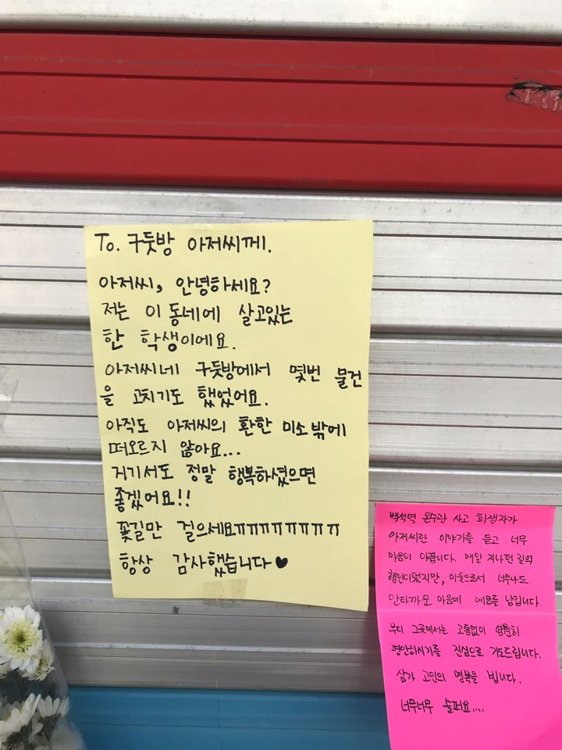 To. 구둣방 아저씨께.
아저씨, 안녕하세요?
저는 이 동네에 살고있는
한 학생이에요.
아저씨네 구둣방에서 몇번 물건
을 고치기도 했었어요.
아직도 아저씨의 환한 미소밖에
떠오르지 않아요...
거기서도 정말 행복하셨으면
좋겠어요!!
꽃길만 걸으세요ㅠㅠㅠㅠㅠㅠㅠ
항상 감사했습니다♥
백석역 온수관 사고 희생자가
아저씨란 이야기를 듣고 너무
마음이 아픕니다. 매일 지나던 길의
행인이었지만, 이웃으로서 너무나도
안타까운 마음에 메모를 남깁니다
부디 그곳에서는 고통없이
평안하시기를 진심으로 기도드립니다.
삼가 고인의 명복을 빕니다.
너무너무 슬퍼요....